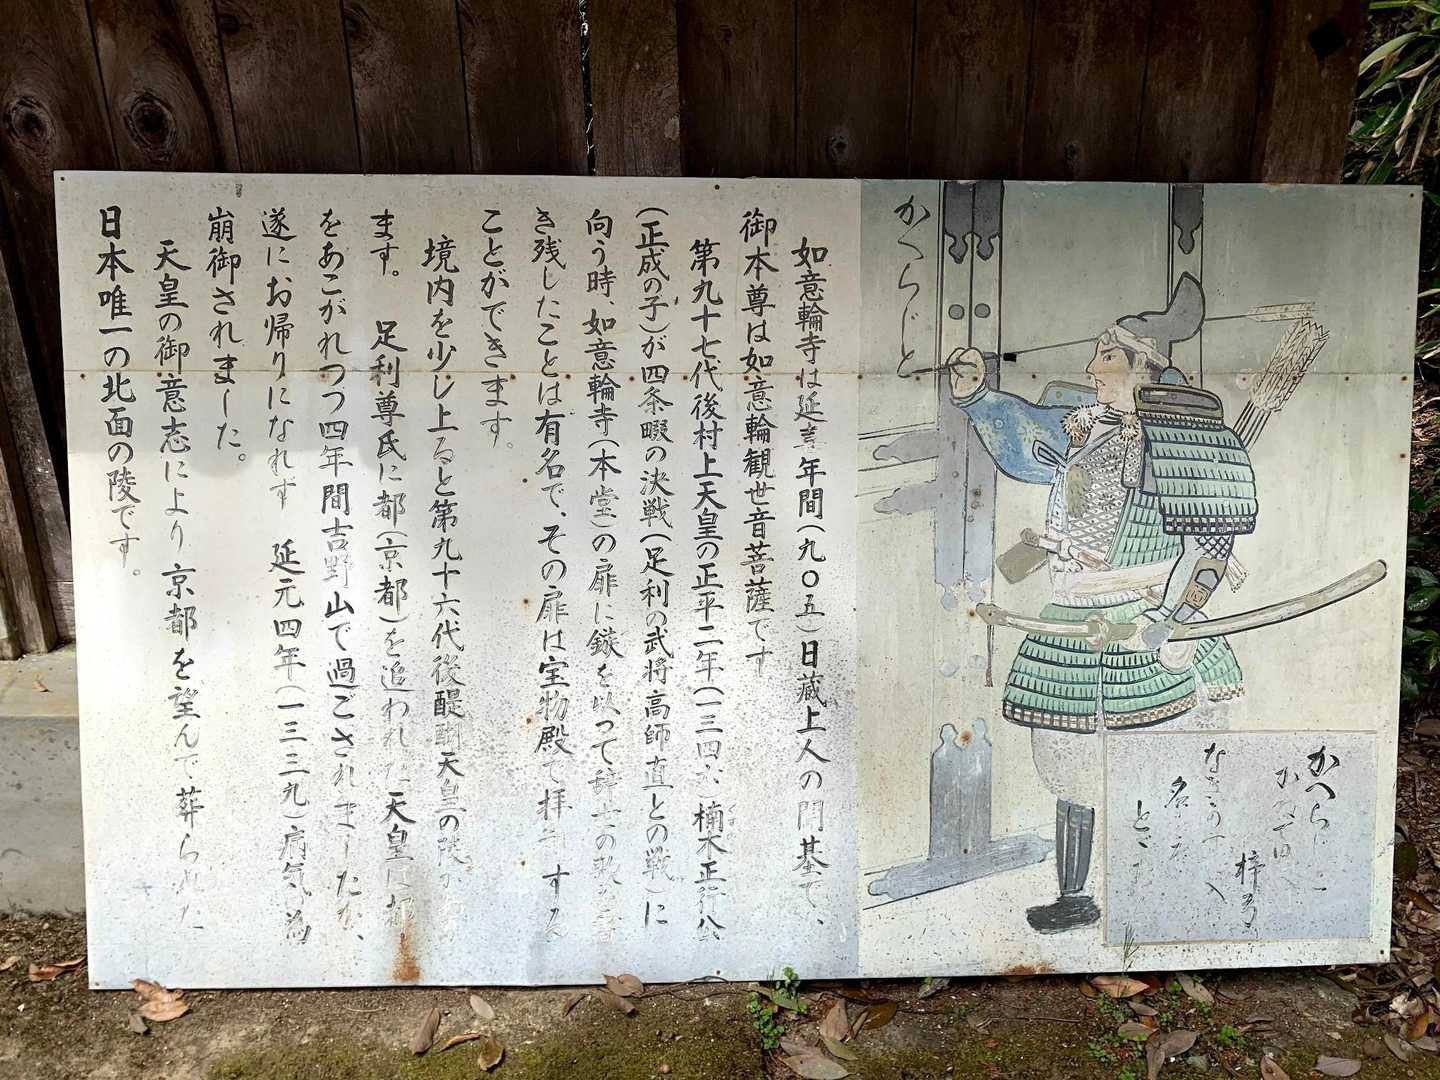 如意輪寺は延 年間(九〇五)日蔵上人の開基で、
御本尊は如意輪観世音菩薩です
第九十七代後村上天皇の正平二年(一三四六)楠木正行公
(正成の子)が四条畷の決戦(足利の武将高師直との戦)に
向う時、如意輪寺(本堂)の扉に鏃を以って辞世の歌を書
き残したことは有名で、その扉は宝物殿で拝 する
ことができます。
境内を少し上ると第九十六代後醍醐天皇の陵が
ます。 足利尊氏に都(京都)を追われた天皇は都
をあこがれつつ四年間吉野山で過ごされましたが、
遂にお帰りになれず 延元四年(一三三九)病気の為
崩御されました。
天皇の御意志により京都を望んで葬られた
日本唯一の北面の陵です。
かへらじと
かへらじと
梓弓
名を